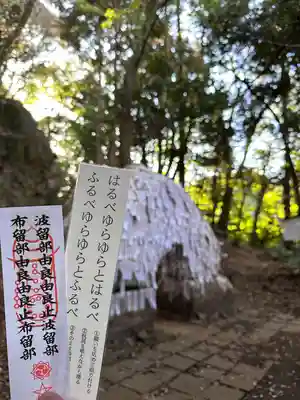 はるべゆらゆらとはるべ
ふるべゆらゆらとふるべ
波留部由良由良止波留部
布留部由良由良止布留部